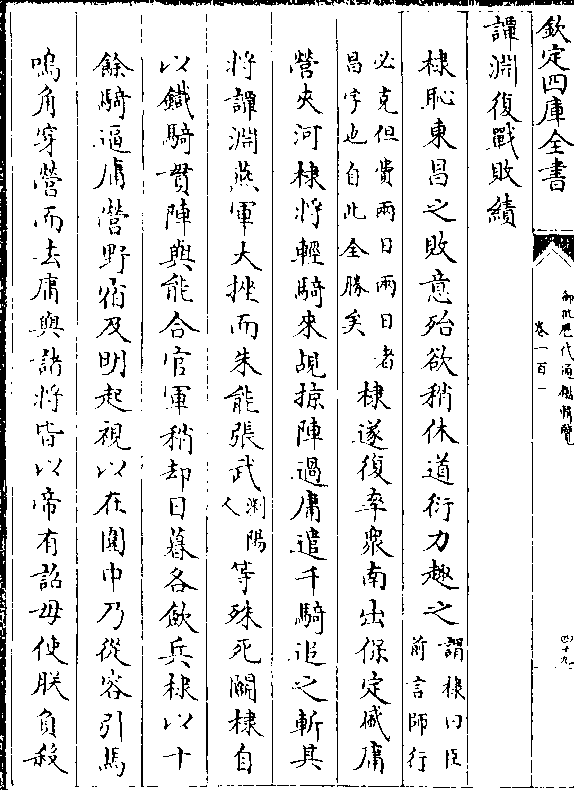 欽定四庫全書
御批歷代通鑑輯覽
卷一百一
四十九
譚淵復戰敗績
棣恥東昌之敗意殆欲稍休道衍力趣之謂棣曰臣前言師行
必克但費兩日兩日者昌字也自此全勝矣棣遂復率衆南出保定盛庸
營夾河棣將輕騎來覘掠陣過庸遣千騎追之斬其
將譚淵燕軍大挫而朱能張武瀏陽人等殊死鬬棣自
以鐵騎貫陣與能合官軍稍却日暮各斂兵棣以十
餘騎逼庸營野宿及明起視以在圍中乃從容引馬
鳴角穿營而去庸與諸將皆以帝有詔毋使朕負殺